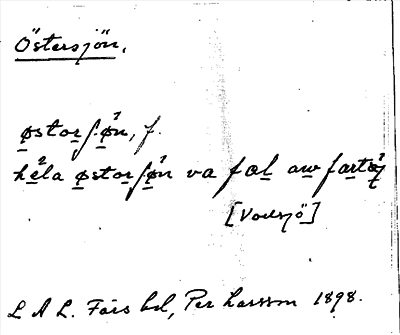 Östersjön.
østorſøn, f.
hela østorſøn va fæl aw fartøj
[Vadsjö]
L A L. Fårs hd, Per Larsson 1898.